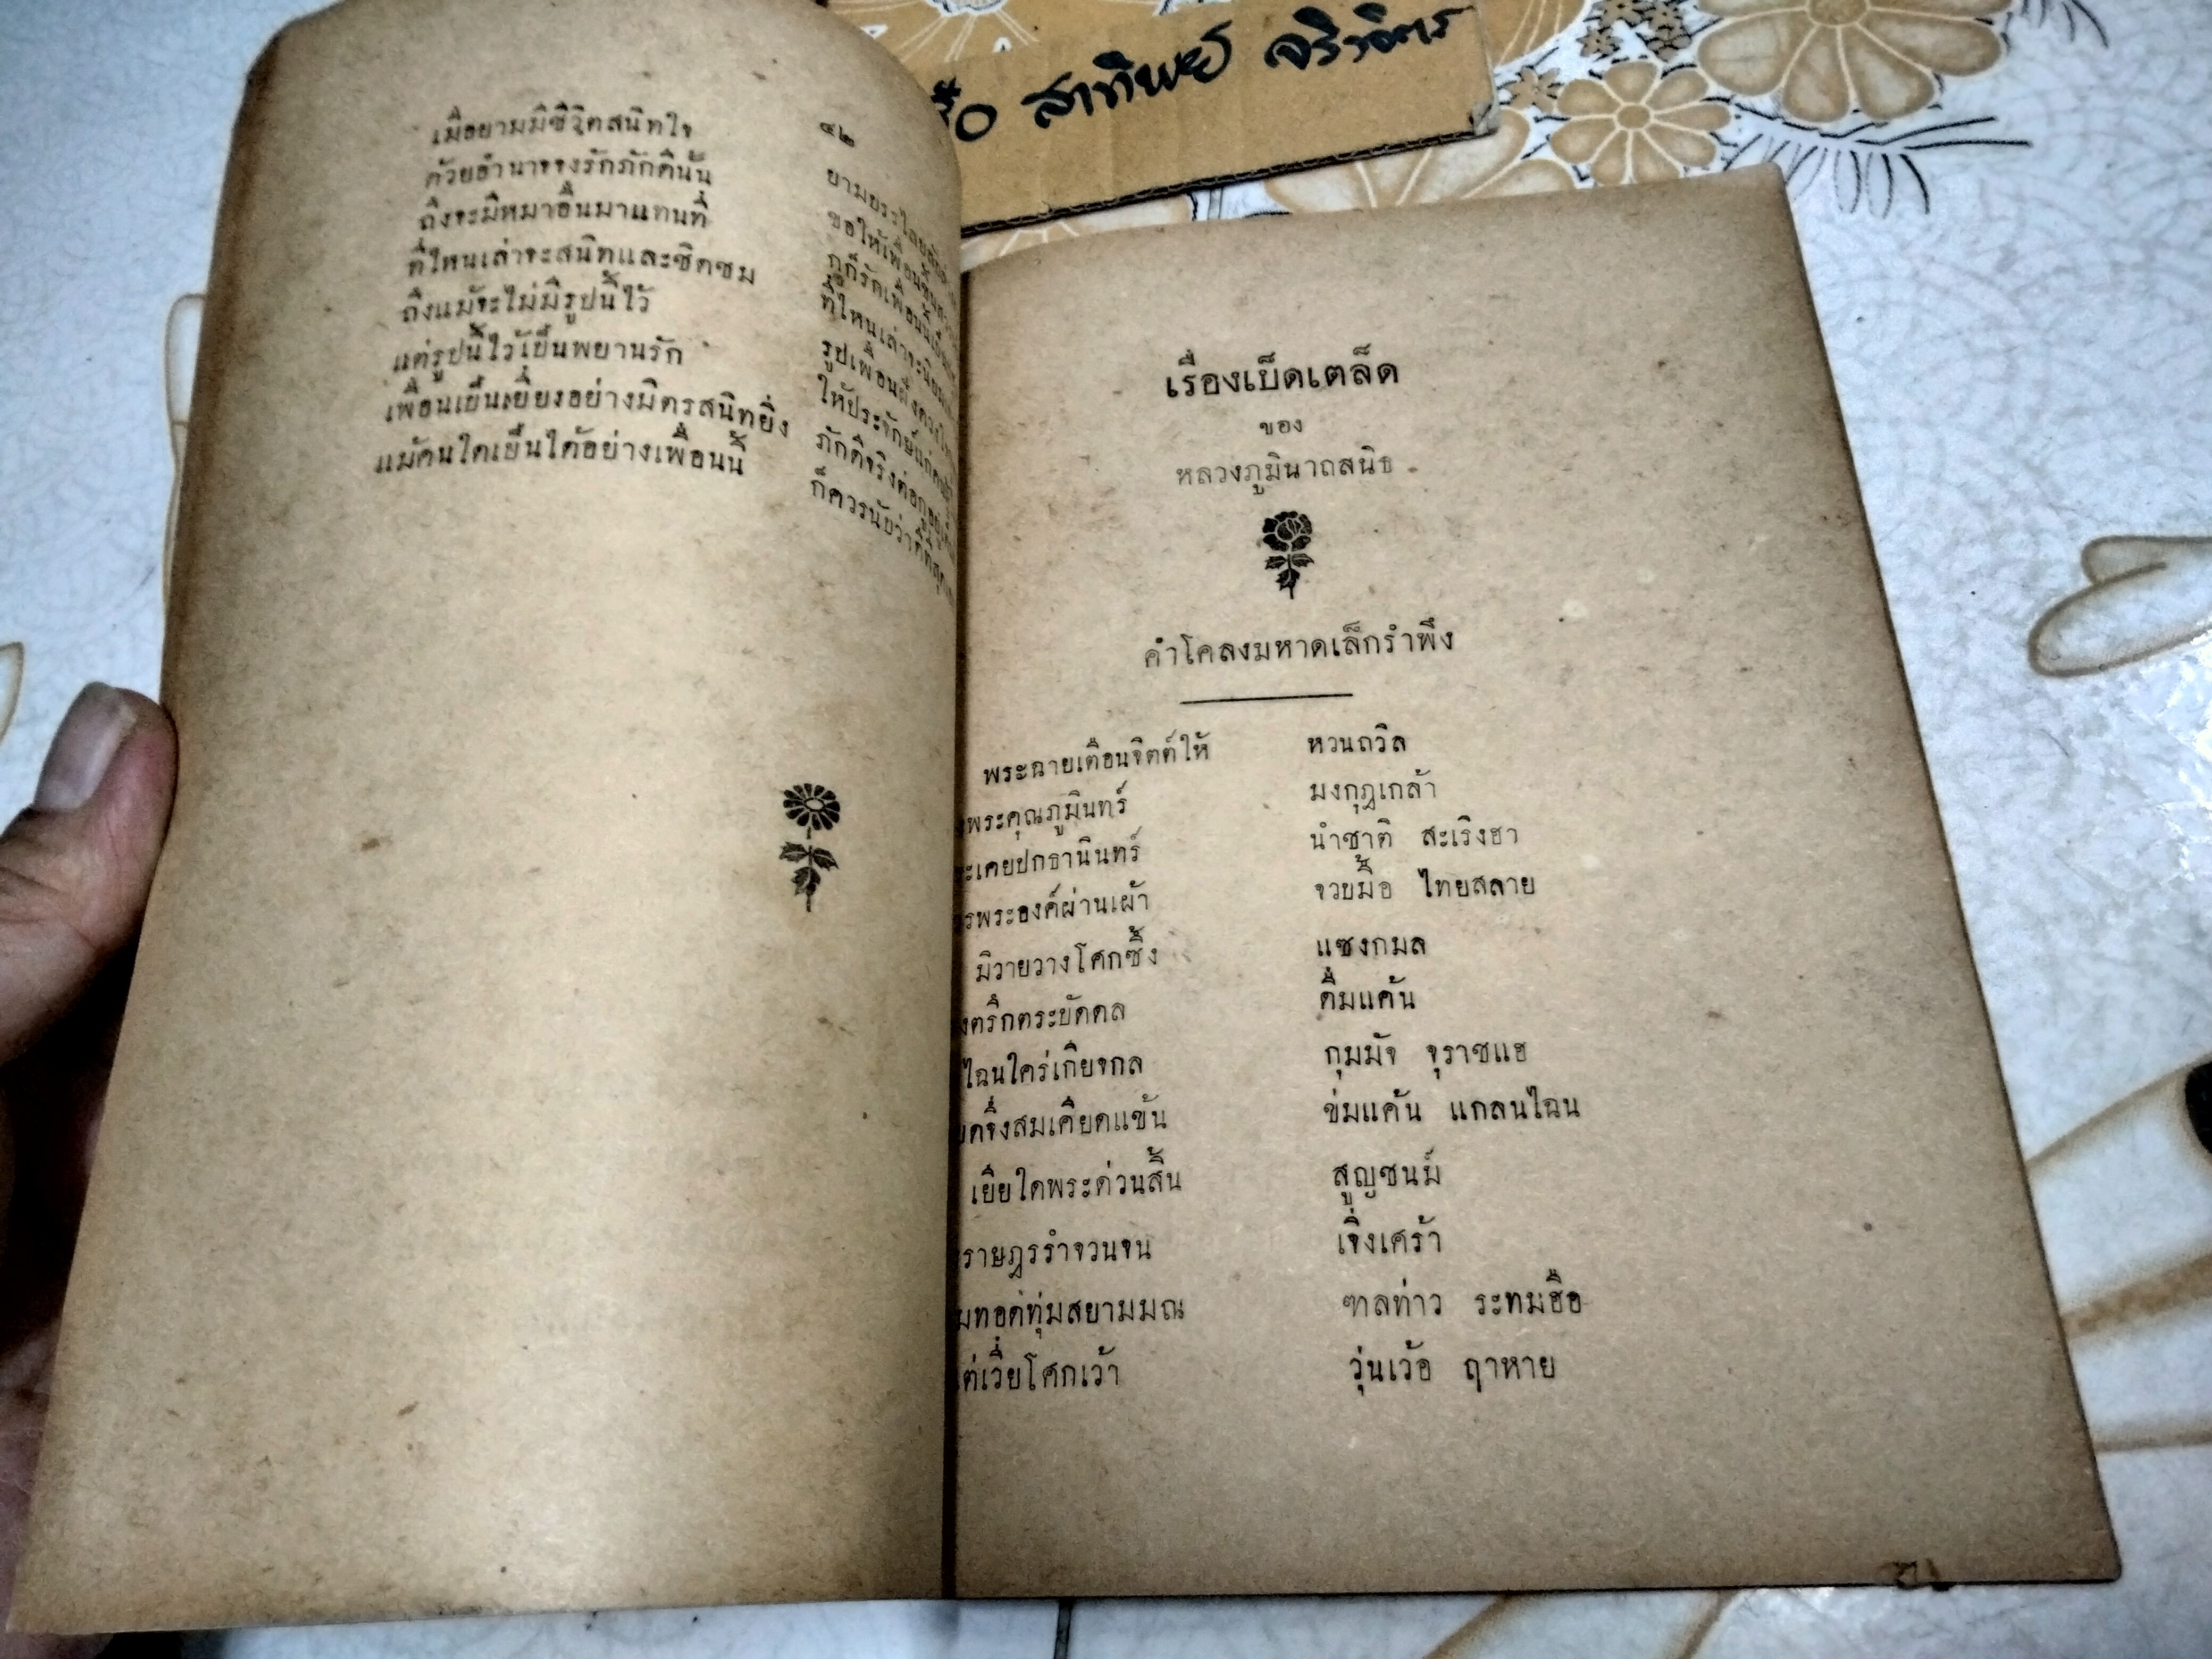 สาทิพย์ จริงจิตร
๔๒
เมื่อยามมีชีวิตสนิทใจ
ด้วยอำนาจจงรักภักดีนั้น
ถึงจะมีหมาอื่นมาแทนที่
ที่ไหนเล่าจะสนิทและชิดชม
ถึงแม้จะไม่มีรูปนี้ไว้
แต่รูปนี้ไว้เป็นพยานรัก
เพื่อนเป็นเยี่ยงอย่างมิตรสนิทยิ่ง
แม้คนใดเป็นได้อย่างเพื่อนนี้
ขอให้เพื่อน
ที่ไหนเล่าจะ
รูปเพื่อน
ให้ประจักษ์แก่
ภักดีจริงต่อกูอยู่
ก็ควรนับว่าดีที่สุด
เรื่องเบ็ดเตล็ด
ของ
หลวงภูมินาถสนิธ
คำโคลงมหาดเล็กรำพึง
พระฉายเตือนจิตต์ให้ หวนถวิล
พระคุณภูมินทร์ มงกุฎเกล้า
เคยปกธานินทร์ นำชาติ สะเริงฮา
พระองค์ผ่านเผ้า จวบมื้อ ไทยสลาย
มิวายวางโศกซึ้ง แซงกมล
ตริกตระบัดดล ดื่มแค้น
ไฉนใคร่เกียจกล กุมมัจ จุราชแฮ
จึ่งสมเคียดแข้น ข่มแค้น แกลนไฉน
เยียใดพระด่วนสิ้น สูญชนม์
ราษฎรรำจวนจน เจิ่งเศร้า
ทอดทุ่มสยามมณ ฑลท่าว ระทมฮือ
เวี่ยโศกเว้า วุ่นเว้อ ฤาหาย